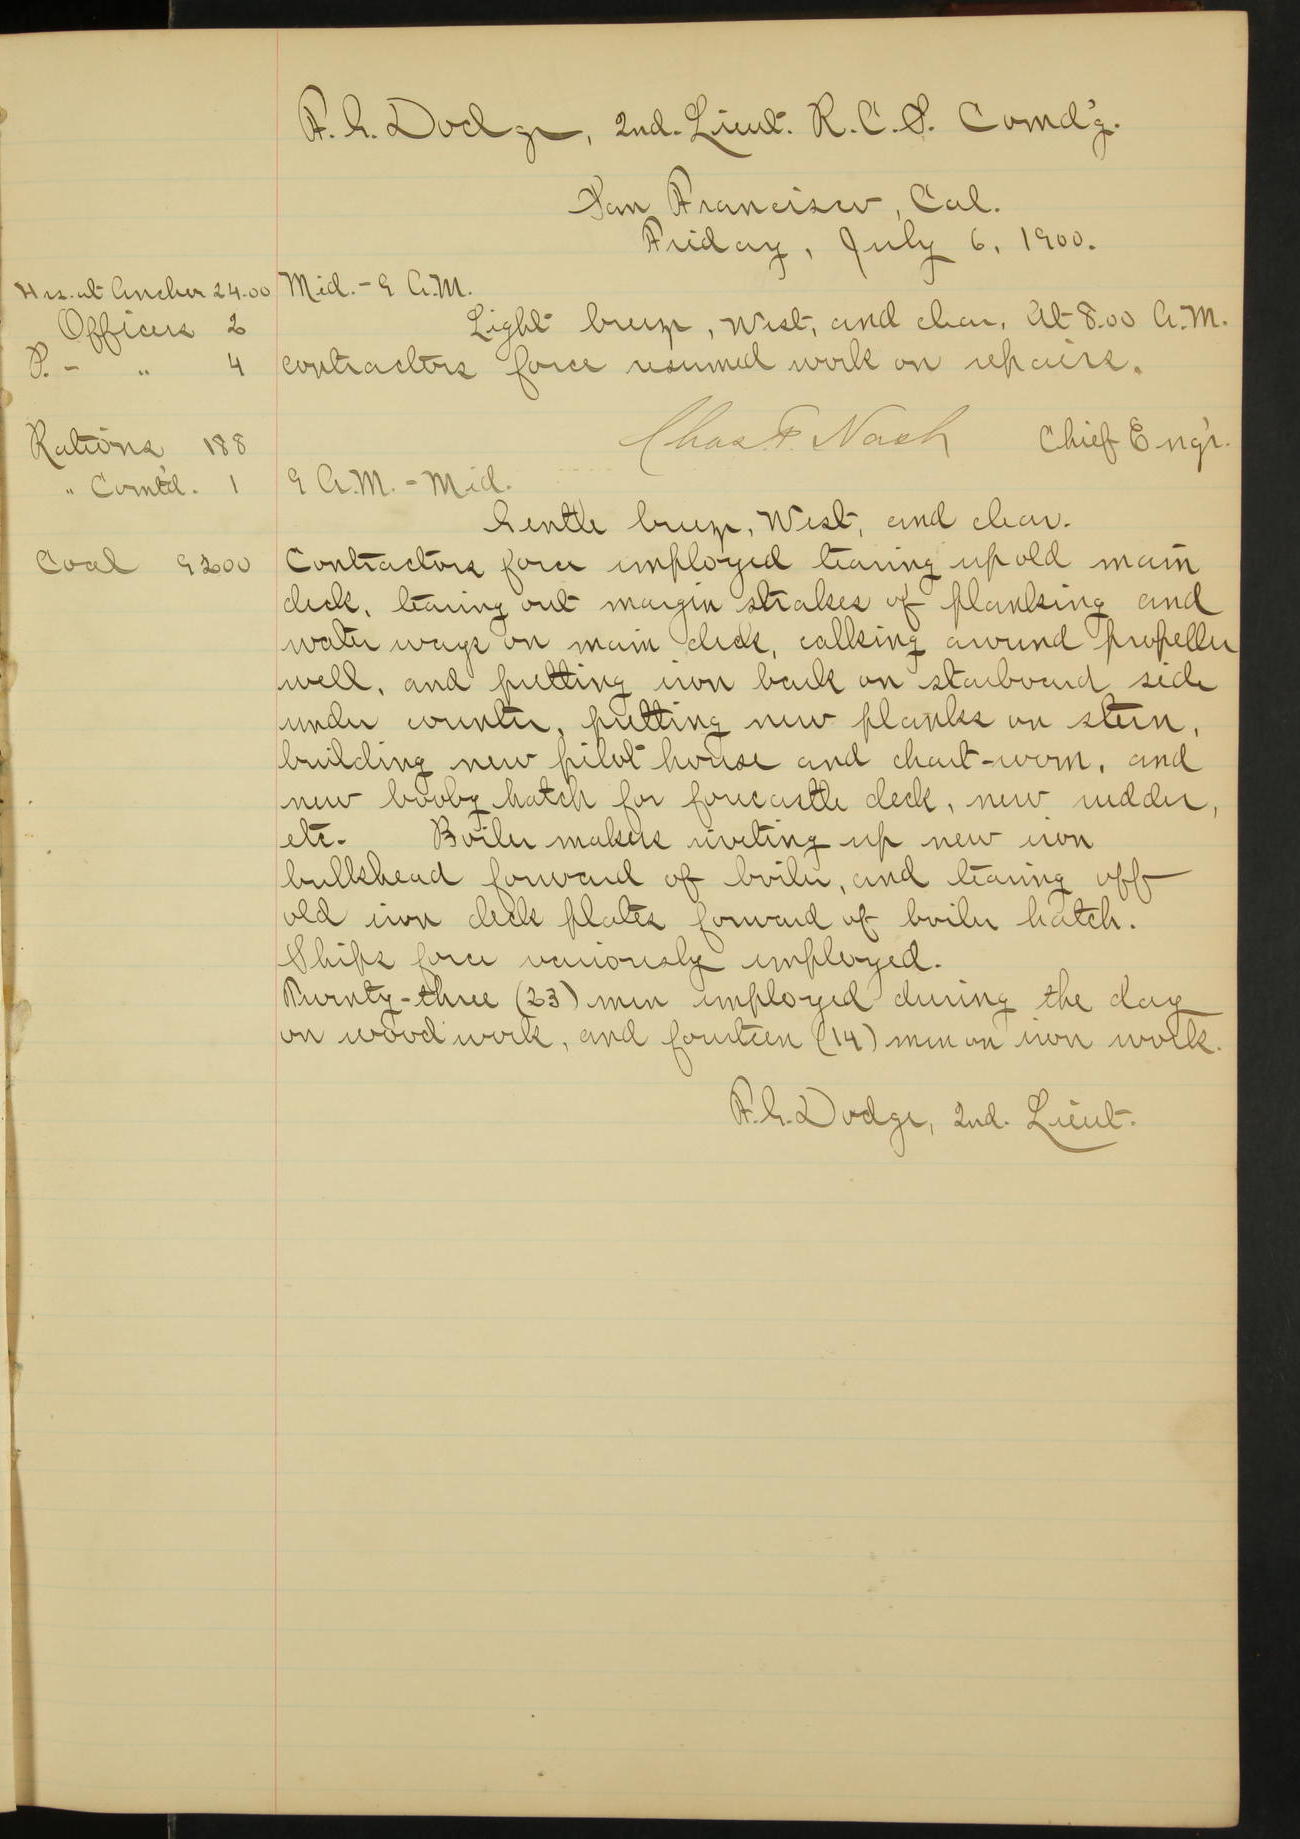 F. G. Dodge, 2nd. Lieut. R. C. S. Comd'g.
San Francisco, Cal.
Friday, July 6, 1900.
Hrs. at Anchor 24.00
Mid. - 9 A.M.
Officers 2
Light breeze, West, and clear. At 8.00 A.M.
P. - " 4
contractors force resumed work on repairs.
Chas. F. Nash Chief Eng'r.
Rations 188
" Com'td. 1
9 A.M. - Mid.
Gentle breeze, West, and clear.
Coal 9200
Contractors force employed tearing up old main
deck, tearing out margin strakes of planking and
water ways on main deck, calking around propeller
well, and putting iron back on starboard side
under counter, putting new planks on stern,
building new pilot house and chart-room, and
new booby hatch for forecastle deck, new rudder,
etc. Boiler makers riveting up new iron
bulkhead forward of boiler, and tearing off
old iron deck plates forward of boiler hatch.
Ships force variously employed.
Twenty-three (23) men employed during the day
on wood work, and fourteen (14) men on iron work.
F. G. Dodge, 2nd. Lieut.